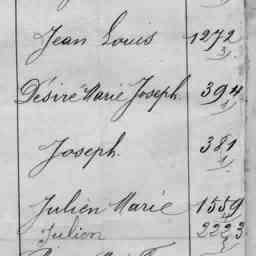 Jean Louis 1272
Désiré Marie Joseph. 394
Joseph. 381
Julien Marie 1559
Julien 2223